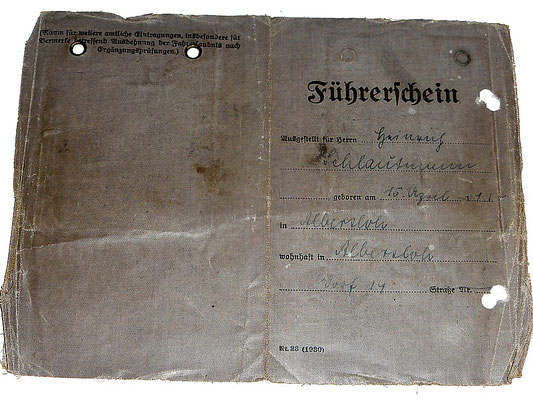 (Raum für weitere amtliche Eintragungen, insbesondere für
Vermerke betreffend Ausdehnung der Fahrerlaubnis nach
Ergänzungsprüfungen.)
Führerschein
Ausgestellt für Herrn Heinrich
Schlautmann
geboren am 15. April
in Albersloh
wohnhaft in Albersloh
Dorf 14 Straße Nr.
Nr. 23 (1939)